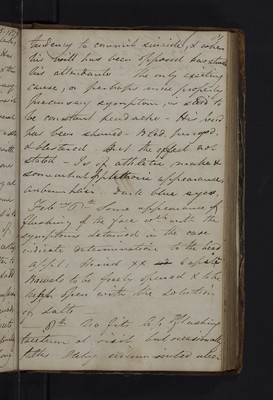 tendency to commit suicide, & when
his will has been opposed has struck
his attendants the only exciting
cause, or perhaps more properly
precursory symptom, is said to
be constant headache - His head
has been shaved - Bled. purged.
& blistered - But the effect not
stated - Is of athletic make &
somewhat plethoric appearance,
auburn hair. Dark blue eyes.
6th Some appearance of
flushing of the face with the
symptoms detained in the case
indicate determination to the head
appl: Hirud XX capiti
Bowels to be freely opened & to be
kept open with the solution
of salts
8th No fits. Less flushing
at visit but occasionally
rather circumscribed ulcer